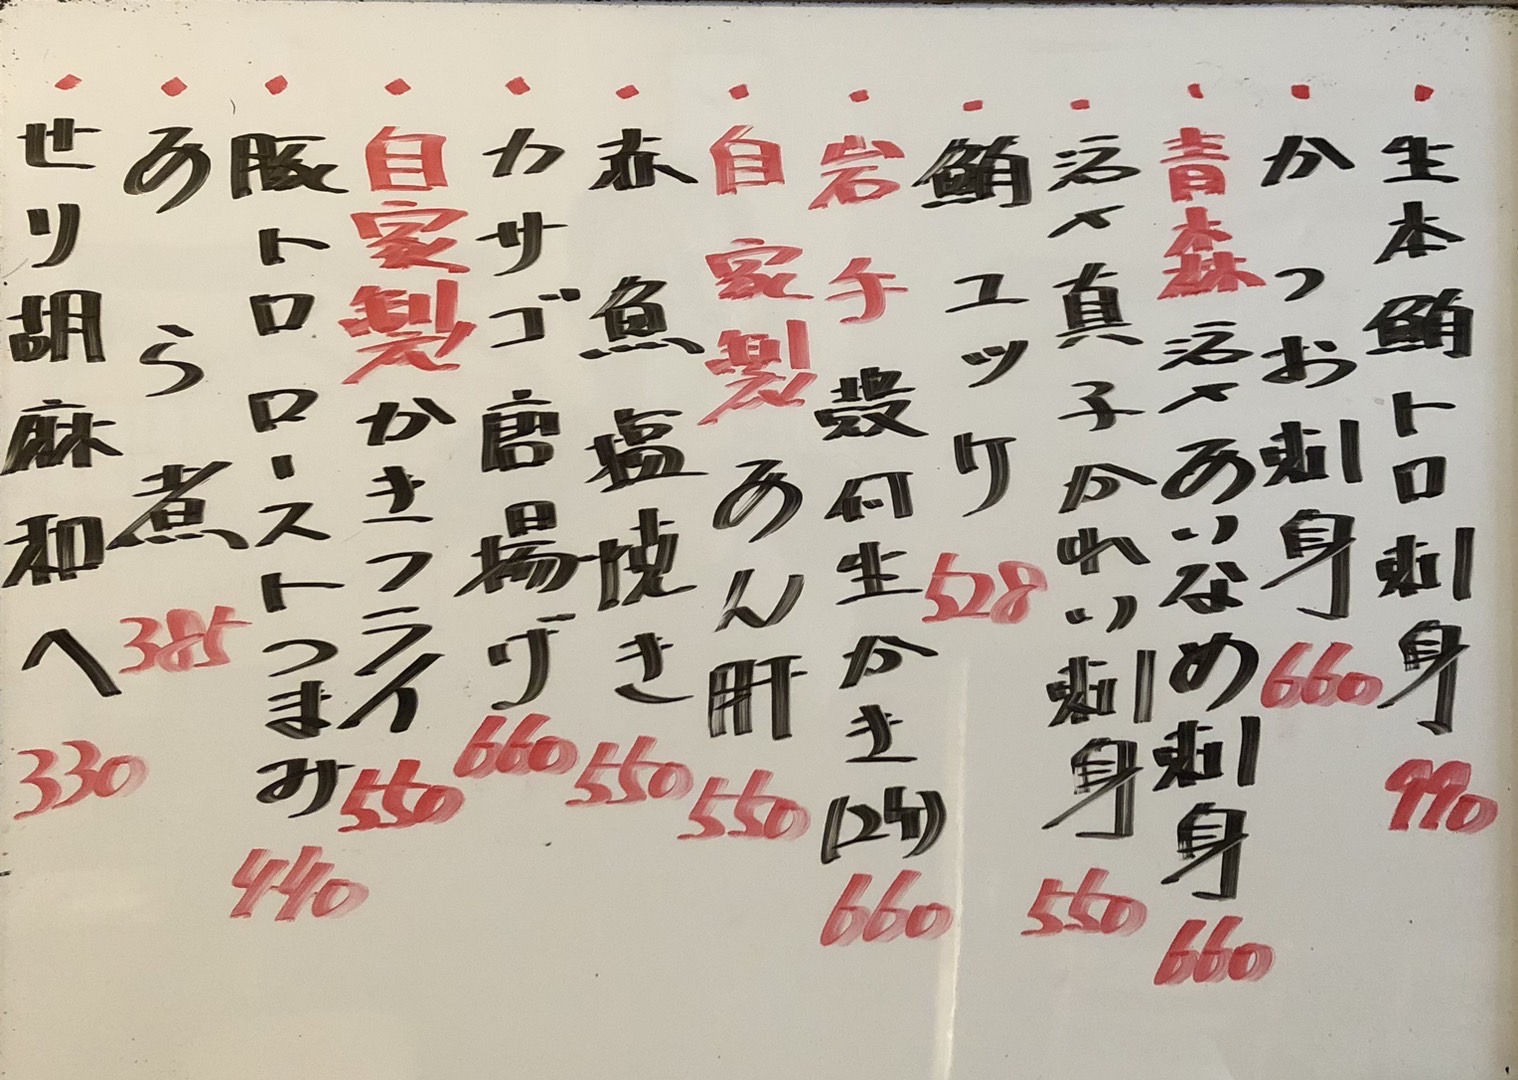 ・生本鮪トロ刺身 990
・かつお刺身 660
・青森活〆あいなめ刺身 660
・活〆真子かれい刺身 550
・鮪ユッケ 528
・岩手殻付生かき(2ケ) 660
・自家製あん肝 550
・赤魚塩焼き 550
・カサゴ唐揚げ 660
・自家製かきフライ 550
・豚トロローストつまみ 440
・あら煮 385
・せり胡麻和へ 330